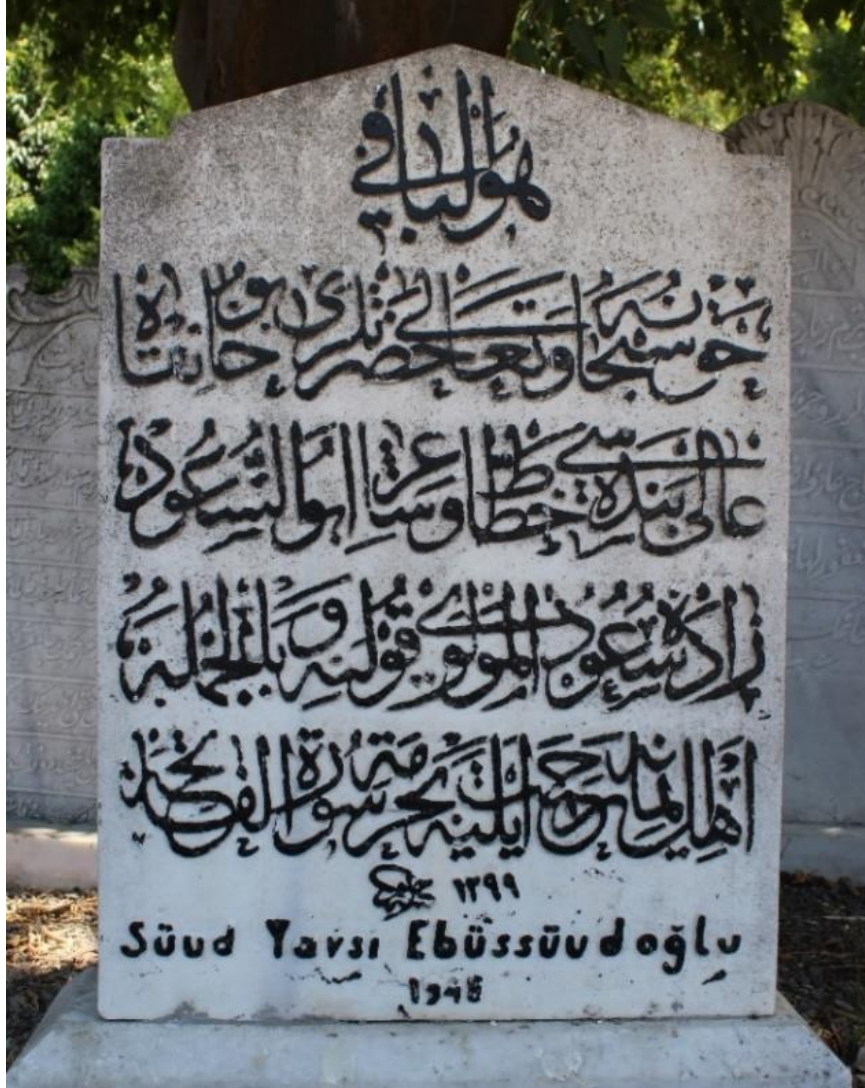 هو الباقي
حق سبحانه وتعالى حضرتلرى بو خانقاه
عالى بنده سى خطاط و شاعر ابو السعود
زاده سعود المولوى قولنه و بالجمله
اهل ايمانه رحمت ايليه بحرمة سورة الفاتحه
١٣٩٩
Süud Yavsı Ebüssüudoğlu
1948